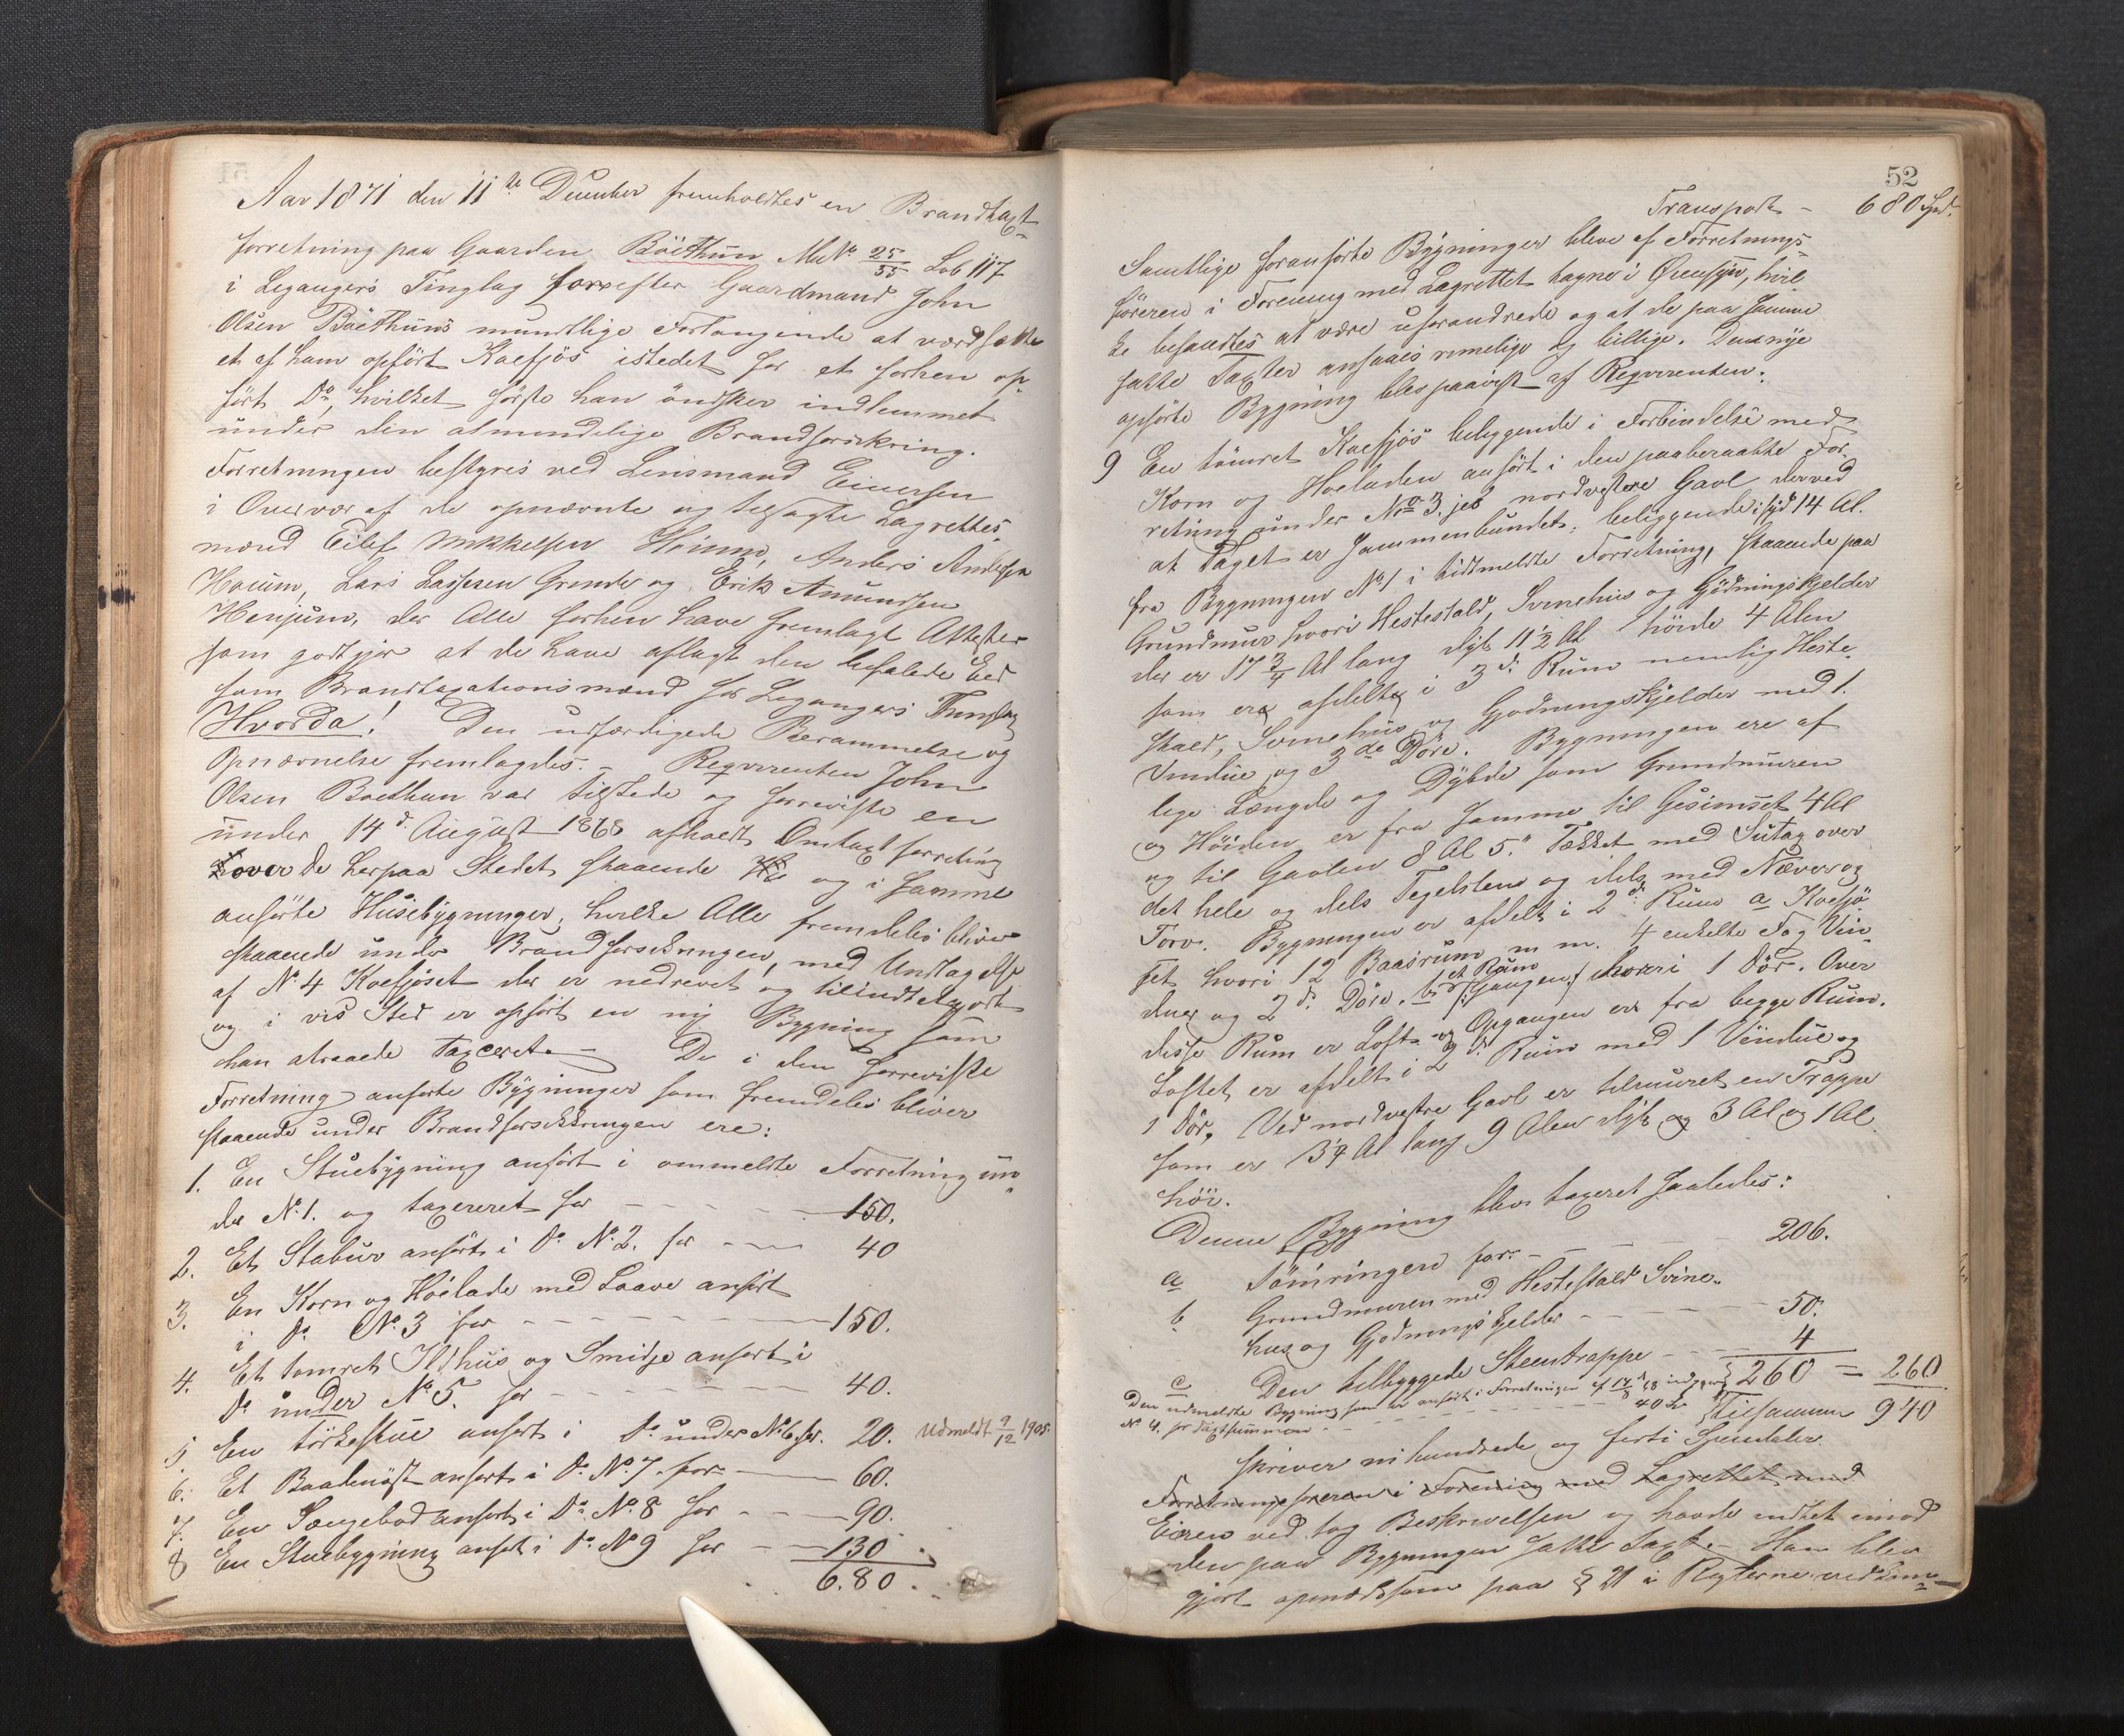 Aar 1871 den 11te December fremholdtes en Brandtaxt-
forretning paa Gaarden Böethun MNo 25/55 Lob 117
i Legangers Tinglag efter Gaardmand John
Olsen Böethuns mundtlige Forlangende at værdsætte
et af ham opført Koefjös istedet for et forhen op-
ført Do, hvilket første han önsker indlemmet
under den almindelige Brandforsikring.
Forretningen bestyres ved Lensmand Einersen
i Overvær af de opnævnte og tilsagte Lagrettes-
mænd Eilef Mikkelsen Anders Andersen
Lars Larssen Grande og Erik Amundsen
Henjum, der Alle forhen have fremlagt Attester
som godtgjør at de have aflagt den befalede Eed
som Brandtaxationsmænd for Legangers Tinglag
Hvorda! Den udfærdigede Berammelse og
Opnævnelse fremlagdes. – Reqvirenten John
Olsen Boethun var tilstede og foreviste en
under 14d August 1868 afholdt Omtaxtforretning
over de herpaa Stedet staaende og i samme
anførte Husebygninger, hvilke Alle fremdeles bliver
staaende under Brandforsikringen, med Undtagelse
af No 4 Koefjöset der er nedrevet og tilindtetgjort
og i vis Sted er opført en ny Bygning som
han attraaede taxeret. – De i den foreviste
Forretning anførte Bygninger som fremdeles bliver
staaende under Brandforsikkringen ere:
1. En Stuebygning anført i ommeldte Forretning un-
der No 1. og taxereret for – – – 150.
2. Et Stabur anført i Do No 2. for – – 40
3. En Korn og Höelade med Laave anført
i Do No 3 for – – – 150.
4. Et tømret Ildhus og Smidje anført i
Do under No 5. for – – – 40.
5 En törkestue anført i Do under No 6 for. 20. Udmeldt 9/12 1905.
6. Et Baadenöst anført i Do No 7. for – 60.
7. En Sængebod anført i Do No 8 for – – 90.
8 En Stuebygning anført i Do No 9 for – – 130.
6.80.
52
Transport – 680 Spd.
Samtlige foranførte Bygninger bleve af Forretnings-
føreren i Forening med Lagrettet tagne i Øiensyn, hvil-
ke befandtes at være uforandrede og at de paa samme
satte Taxter ansaaes rimelige og billige. Den nye
opførte Bygning blev paavist af Reqvirenten:
9 En tömret Koefjös beliggende i Forbindelse med
Korn og Hoeladen anført i den paaberaabte For-
retning under No 3. jes nordvestere Gavl derved
at Taget er sammenbundet; beliggende i syd 14 Al.
fra Bygningen No 1 i tidtmeldte Forretning, staaende paa
Grundmur hvori Hestestald, Svinehus og Gödningskjelder
der er 17 3/4 Al lang dyb 11 1/2 Al höide 4 Alen
som er afdelte i 3de Rum nemlig Heste-
stald, Svinehus og Gjødningskjelder med 1.
Vindue og 3de Döre. Bygningen ere af
lige Længde og Dÿbde som Grundmuren
og Höiden er fra samme til Gesimset 4 Al
og til Gavlen 8 Al 5." Tækket med Sutag over
det hele og dels Tegelsten og dels med Næver og
Torv. Bygningen er afdelt i 2de Rum a Koefjö-
set hvori 12 Baasrum m m. 4 enkelte Fag Vin-
duer og 2de Döre. b et Rum (:Gangen:) hvori 1 Dör. Over
disse Rum er Loft og Opgangen er fra begge Rum.
Loftet er afdelt i 2de Rum med 1 Vindue og
1 Dör. Ved nordvestre Gavl er tilmuret en Trappe
som er 3 1/4 Al lang 9 Alen dyb og 3 Al og 1 Al
höi.
Denne Bygning blev taxeret saaledes:
a Tömringen for – – – 206.
b Grundmuren med Hestestald Svine-
hus og Gjødningskjelder – – – 50.
c Den tilbyggede Steentrappe – – 4
260 = 260
Den udmeldte Bygning som er anført i Forretningen af 14/8 68
No 4. for Taxtsummen – – 40
Tilsammen 940
skriver ni hundrede og forti Speciedaler.
Forretningsføreren i Forening med Lagrettet med
Eieren ved tog Beskrivelsen og havde indtet imod
den paa Bygningen satte Taxt. – Han blev
gjort opmærksom paa § 21 i Reglerne ved Lov-